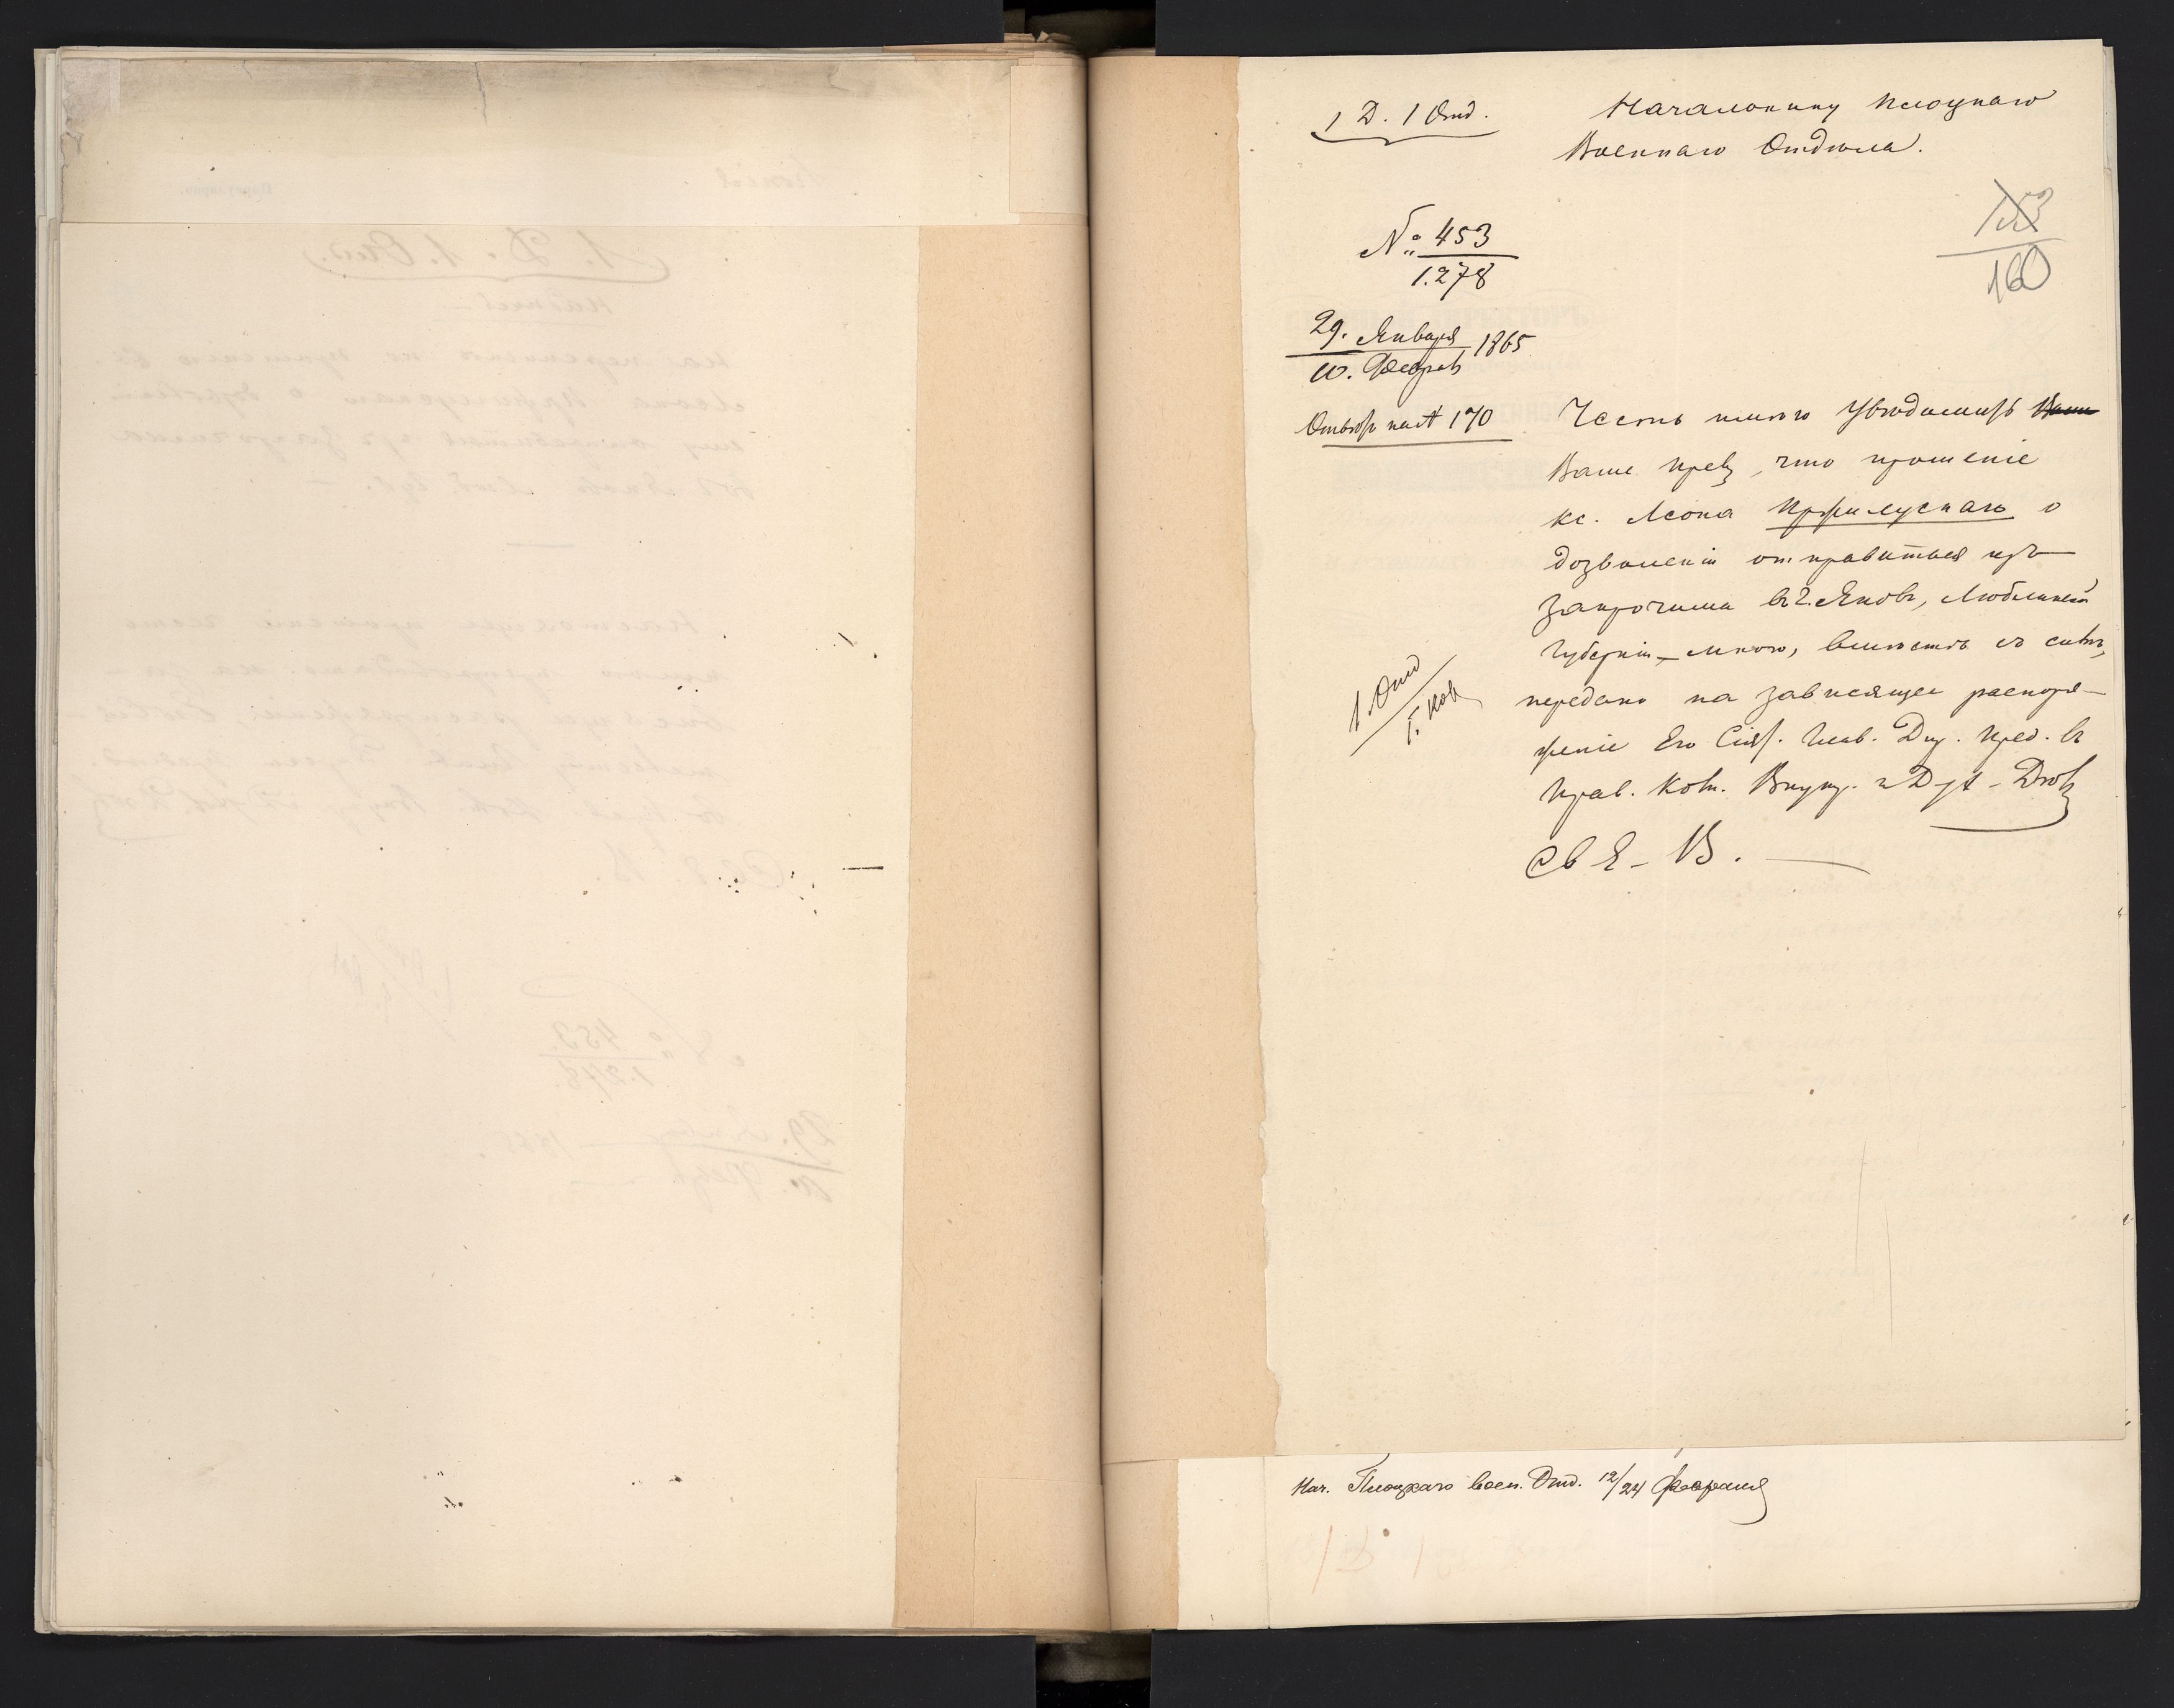 1 Д. 1 Отд.
Начальнику Плоцкаго
Военнаго Отдѣла.
153
160
№ 453
1.278
29. Января
10. Февр. 1865
Отвѣтъ на № 170
Честь имѣю увѣдомить
Ваше Прев, что прошеніе
кс. Леона о
дозволеніи отправиться изъ
Закрочима въ г. Яновъ, Люблинской
Губерніи – мною, вмѣстѣ съ симъ,
передано на зависящее распоря-
женіе Его Сіят. Глав. Дир. Пред. въ
Прав. Ком. Внутр. и Д. Дѣлъ
Св Е – В.
1. Отд
Нач. Плоцкаго воен. Отд. 12/24 февраля